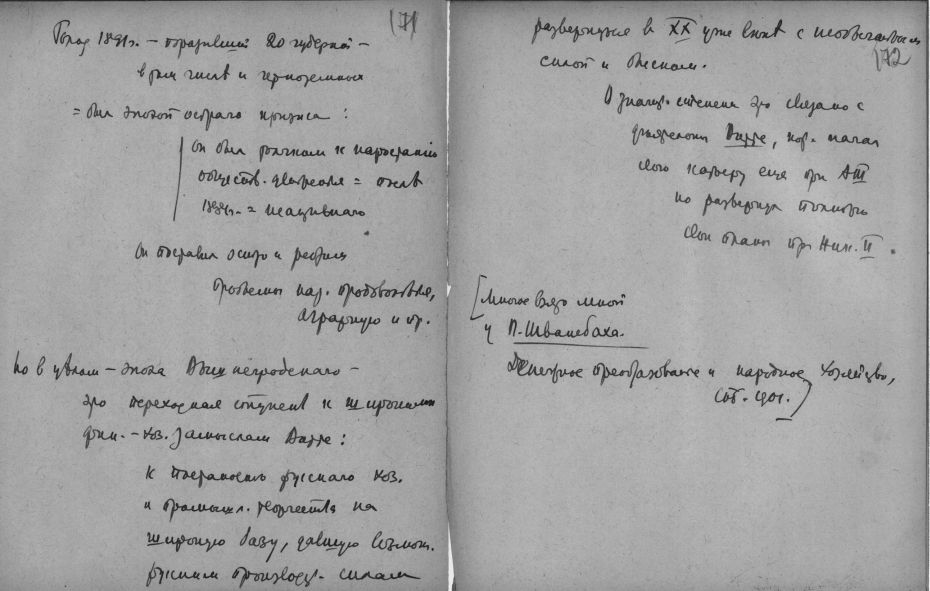 171
Голод 1891г. – поразивший 20 губерний –
в том числе и черноземных
= был эпохой острого кризиса:
он был толчком к нарастанию
обществ. движения = после
1891г. =
он поставил остро и
проблемы нар. продовольствия,
аграрную и пр.
Но в целом – эпоха Вышнеградского –
это переходная ступень к широким
фин.-хоз. замыслам Витте:
к построению русского хоз.
и промышл. творчества на
широкую базу, давшую возможн.
русским производ. силам
172
развернуться в XX уже веке с необычайным
силой и блеском.
В значит. степени это связано с
Витте, кот. начал
свою карьеру еще при АIII
но развернул полностью
свои планы при Ник. II.
[Многое взято мной
у П. Шванебаха.
Денежное преобразование и народное хозяйство,
СПб. 1901.]